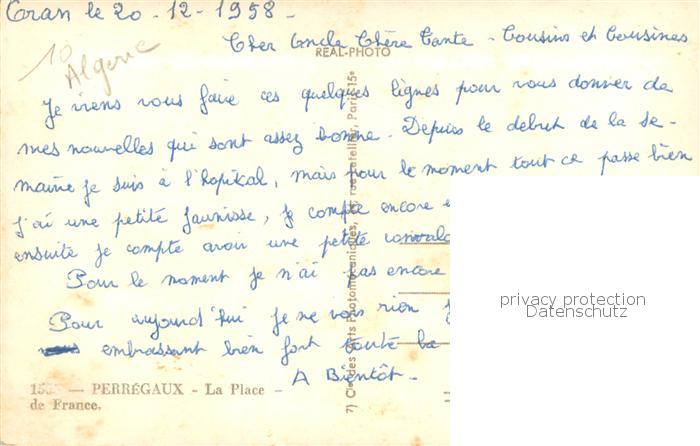 Oran le 20 - 12 - 1958 -
Cher Oncle Chère Tante - Cousins et Cousines
REAL-PHOTO
10
Algerie
Je viens vous faire ces quelques lignes pour vous donner de
mes nouvelles qui sont assez bonne. Depuis le début de la se-
maine je suis à l'hopital, mais pour le moment tout ce passe bien
j'ai une petite jaunisse, je compte encore
ensuite je compte avoir une petite
Pour le moment je n'ai pas encore
privacy protection
Datenschutz
Pour aujourd'hui je ne vois rien
embrassant bien fort toute la
A Bientôt -
PERRÉGAUX - La Place -
de France.
7) Cie des Arts Photomécaniques, rue Letellier, Paris-15e